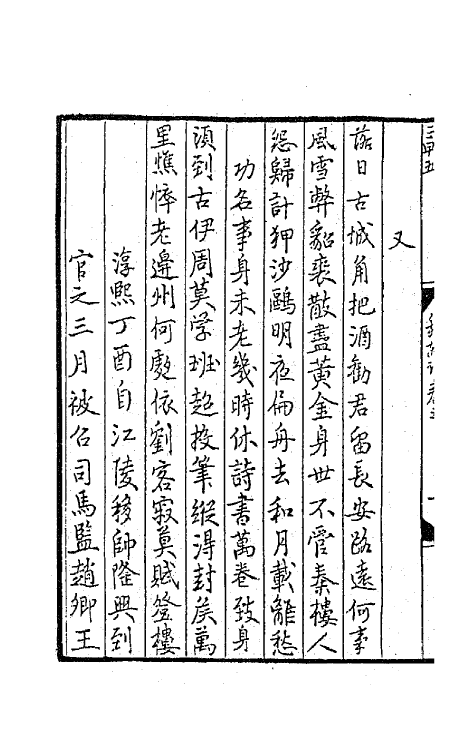 又
落日古城角把酒勸君留長安路遠何事
風雪弊貂裘散盡黄金身世不管秦樓人
怨歸計狎沙鷗明夜倫舟去和月載離愁
功名事身未老幾時休詩書萬卷致身
湏到古伊周莫学班超投筆縱淂封矦萬
里憔悴老邉州何處依劉客寂寞賦登樓
淳熙丁酉自江陵移帥隆興到
官之三月被召司馬監趙卿王